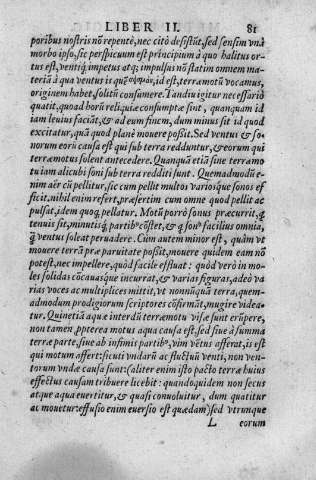 LIBER II. 81
poribus nostris nō repentè, nec citò desistūt, sed sensim vnà
morbo ipso, sic perspicuum est principium à quo halitus or-
tus est, ventiq; impetus atq; impulsus nō statim omnem ma-
teriā à qua ventus is quē σεισμὸν, id est, terræmotū vocamus,
originem habet, solitū consumere. Tandiu igitur necessariò
quatit, quoad horū reliquiæ consumptæ sint, quanquam id
iam leuius faciāt, & ad eum finem, dum minus sit id quod
excitatur, quā quod planè mouere possit. Sed ventus & so-
norum eorū causa est qui sub terra redduntur, & eorum qui
terræmotus solent antecedere. Quanquā etiā sine terræmo
tu iam alicubi soni sub terra redditi sunt. Quemadmodū e-
nim aër cū pellitur, sic cum pellit multos variosque sonos ef
ficit. nihil enim refert, præsertim cum omne quod pellit ac
pulsat, idem quoq; pellatur. Motū porrò sonus præcurrit, q
tenuis sit, minutisq; partibꝰ cōstet, & q̃ sonꝰ facilius omnia,
q̃ ventus soleat peruadere. Cum autem minor est, quàm vt
mouere terrā præ paruitate possit, mouere quidem eam nō
potest, nec impellere, quòd facilè effluat: quòd verò in mo-
les solidas cōcauasque incurrat, & varias figuras, adeò va
rias voces ac multiplices mittit, vt nonnuquā terra, quem-
admodum prodigiorum scriptores cōfirmāt, mugire videa-
tur. Quinetiā aquæ interdū terræmotu visæ sunt erūpere,
non tamen ꝓpterea motus aqua causa est, sed siue à summa
terræ parte, siue ab infimis partibꝰ, vim vētus afferat, is est
qui motum affert: sicuti vndarū ac fluctuū venti, non ven-
torum vndæ causa sunt: (aliter enim isto pacto terræ huius
effectus causam tribuere licebit: quandoquidem non secus
atque aqua euertitur, & quasi conuoluitur, dum quatitur
ac mouetur: effusio enim euersio est quædam) sed vtrunque
L eorum